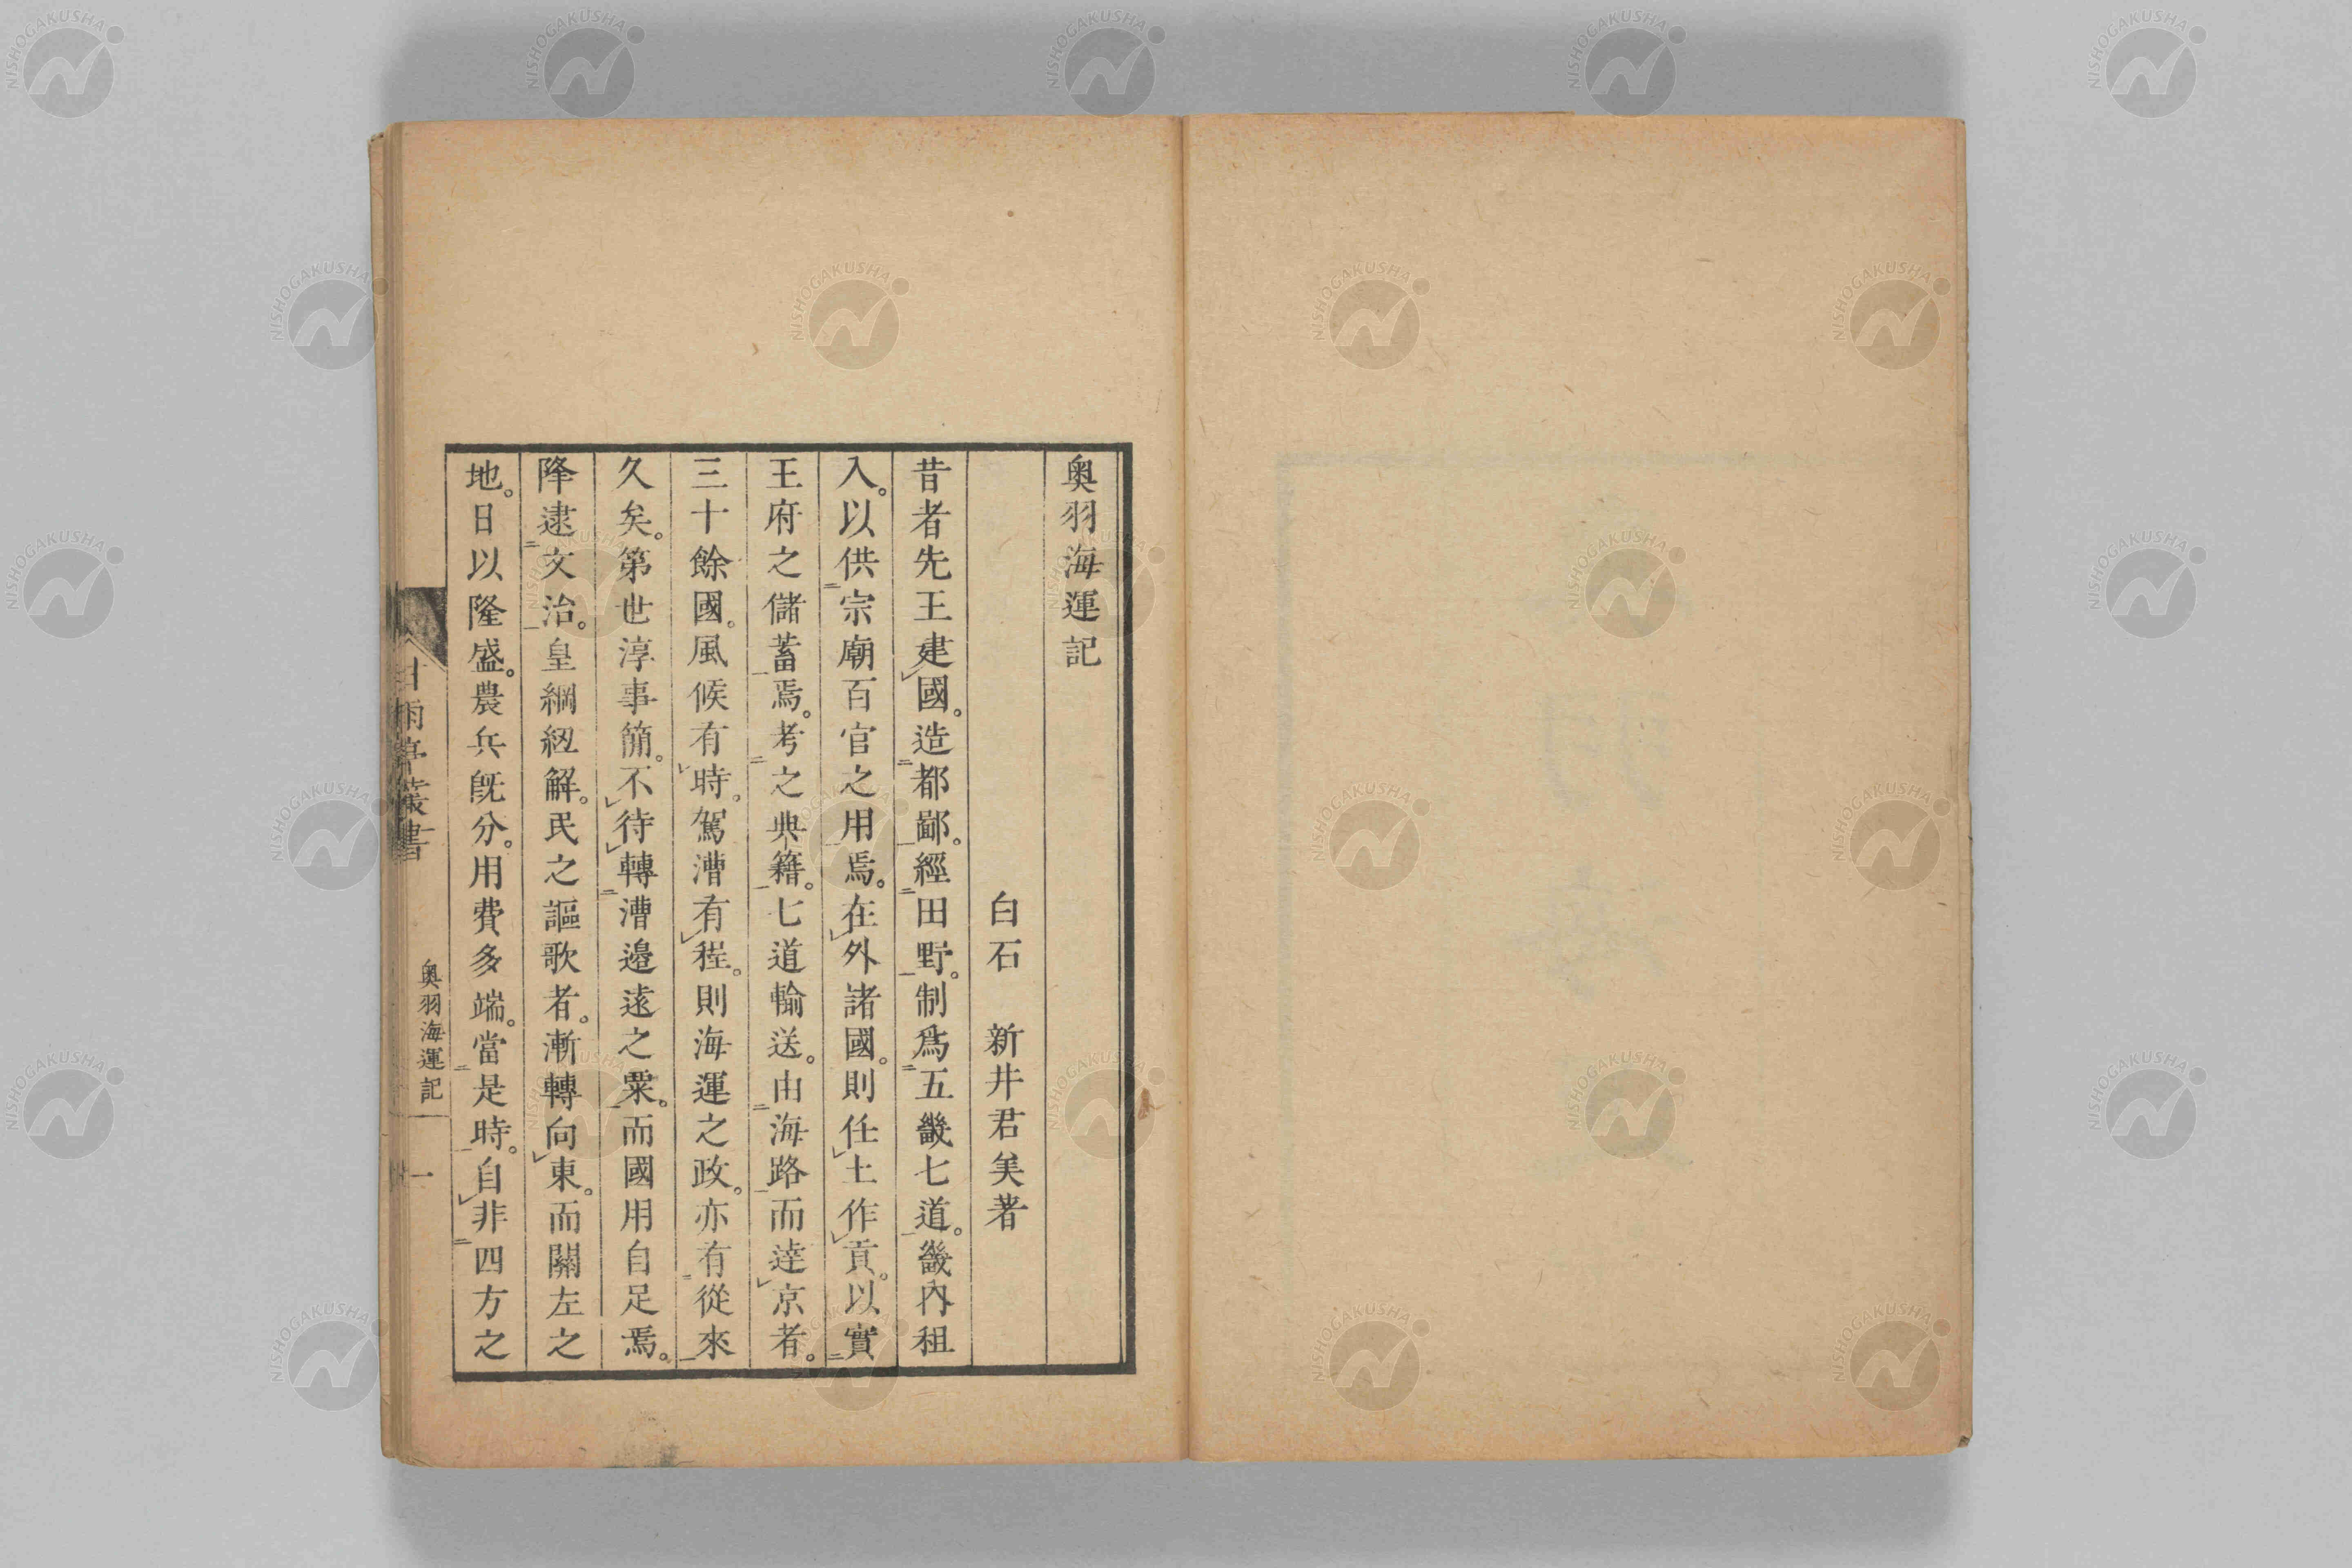 奥羽海運記
白石　新井君美著
昔者先王建國。造都鄙。經田野。制爲五畿七道。畿内租
入。以供宗廟百官之用焉。在外諸國。則任土作貢。以實
王府之儲蓄焉。考之典籍。七道輸送。由海路而達京者。
三十餘國。風候有時。駕漕有程。則海運之政。亦有從來
久矣。第世淳事簡。不待轉漕邉遠之粟。而國用自足焉。
降逮文治。皇綱紐解。民之謳歌者。漸轉向東。而關左之
地。日以隆盛。農兵既分。用費多端。當是時。自非四方之
甘雨亭叢書
奥羽海運記
一
NISHOGAKUSHA